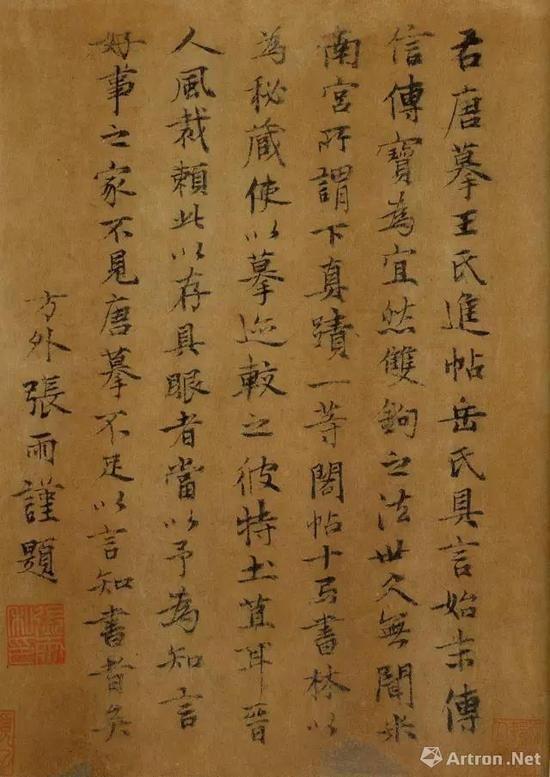 右唐摹王氏進帖岳氏具言始末傳
信傳寶為宜然雙鉤之法世久無聞米
南宮所謂下真蹟一等閣帖十易書林以
為秘藏使以摹迹較之彼特土苴耳晉
人風裁賴此以存具眼者當以予為知言
好事之家不見唐摹不足以言知書者矣
方外張雨謹題
Artron.Net